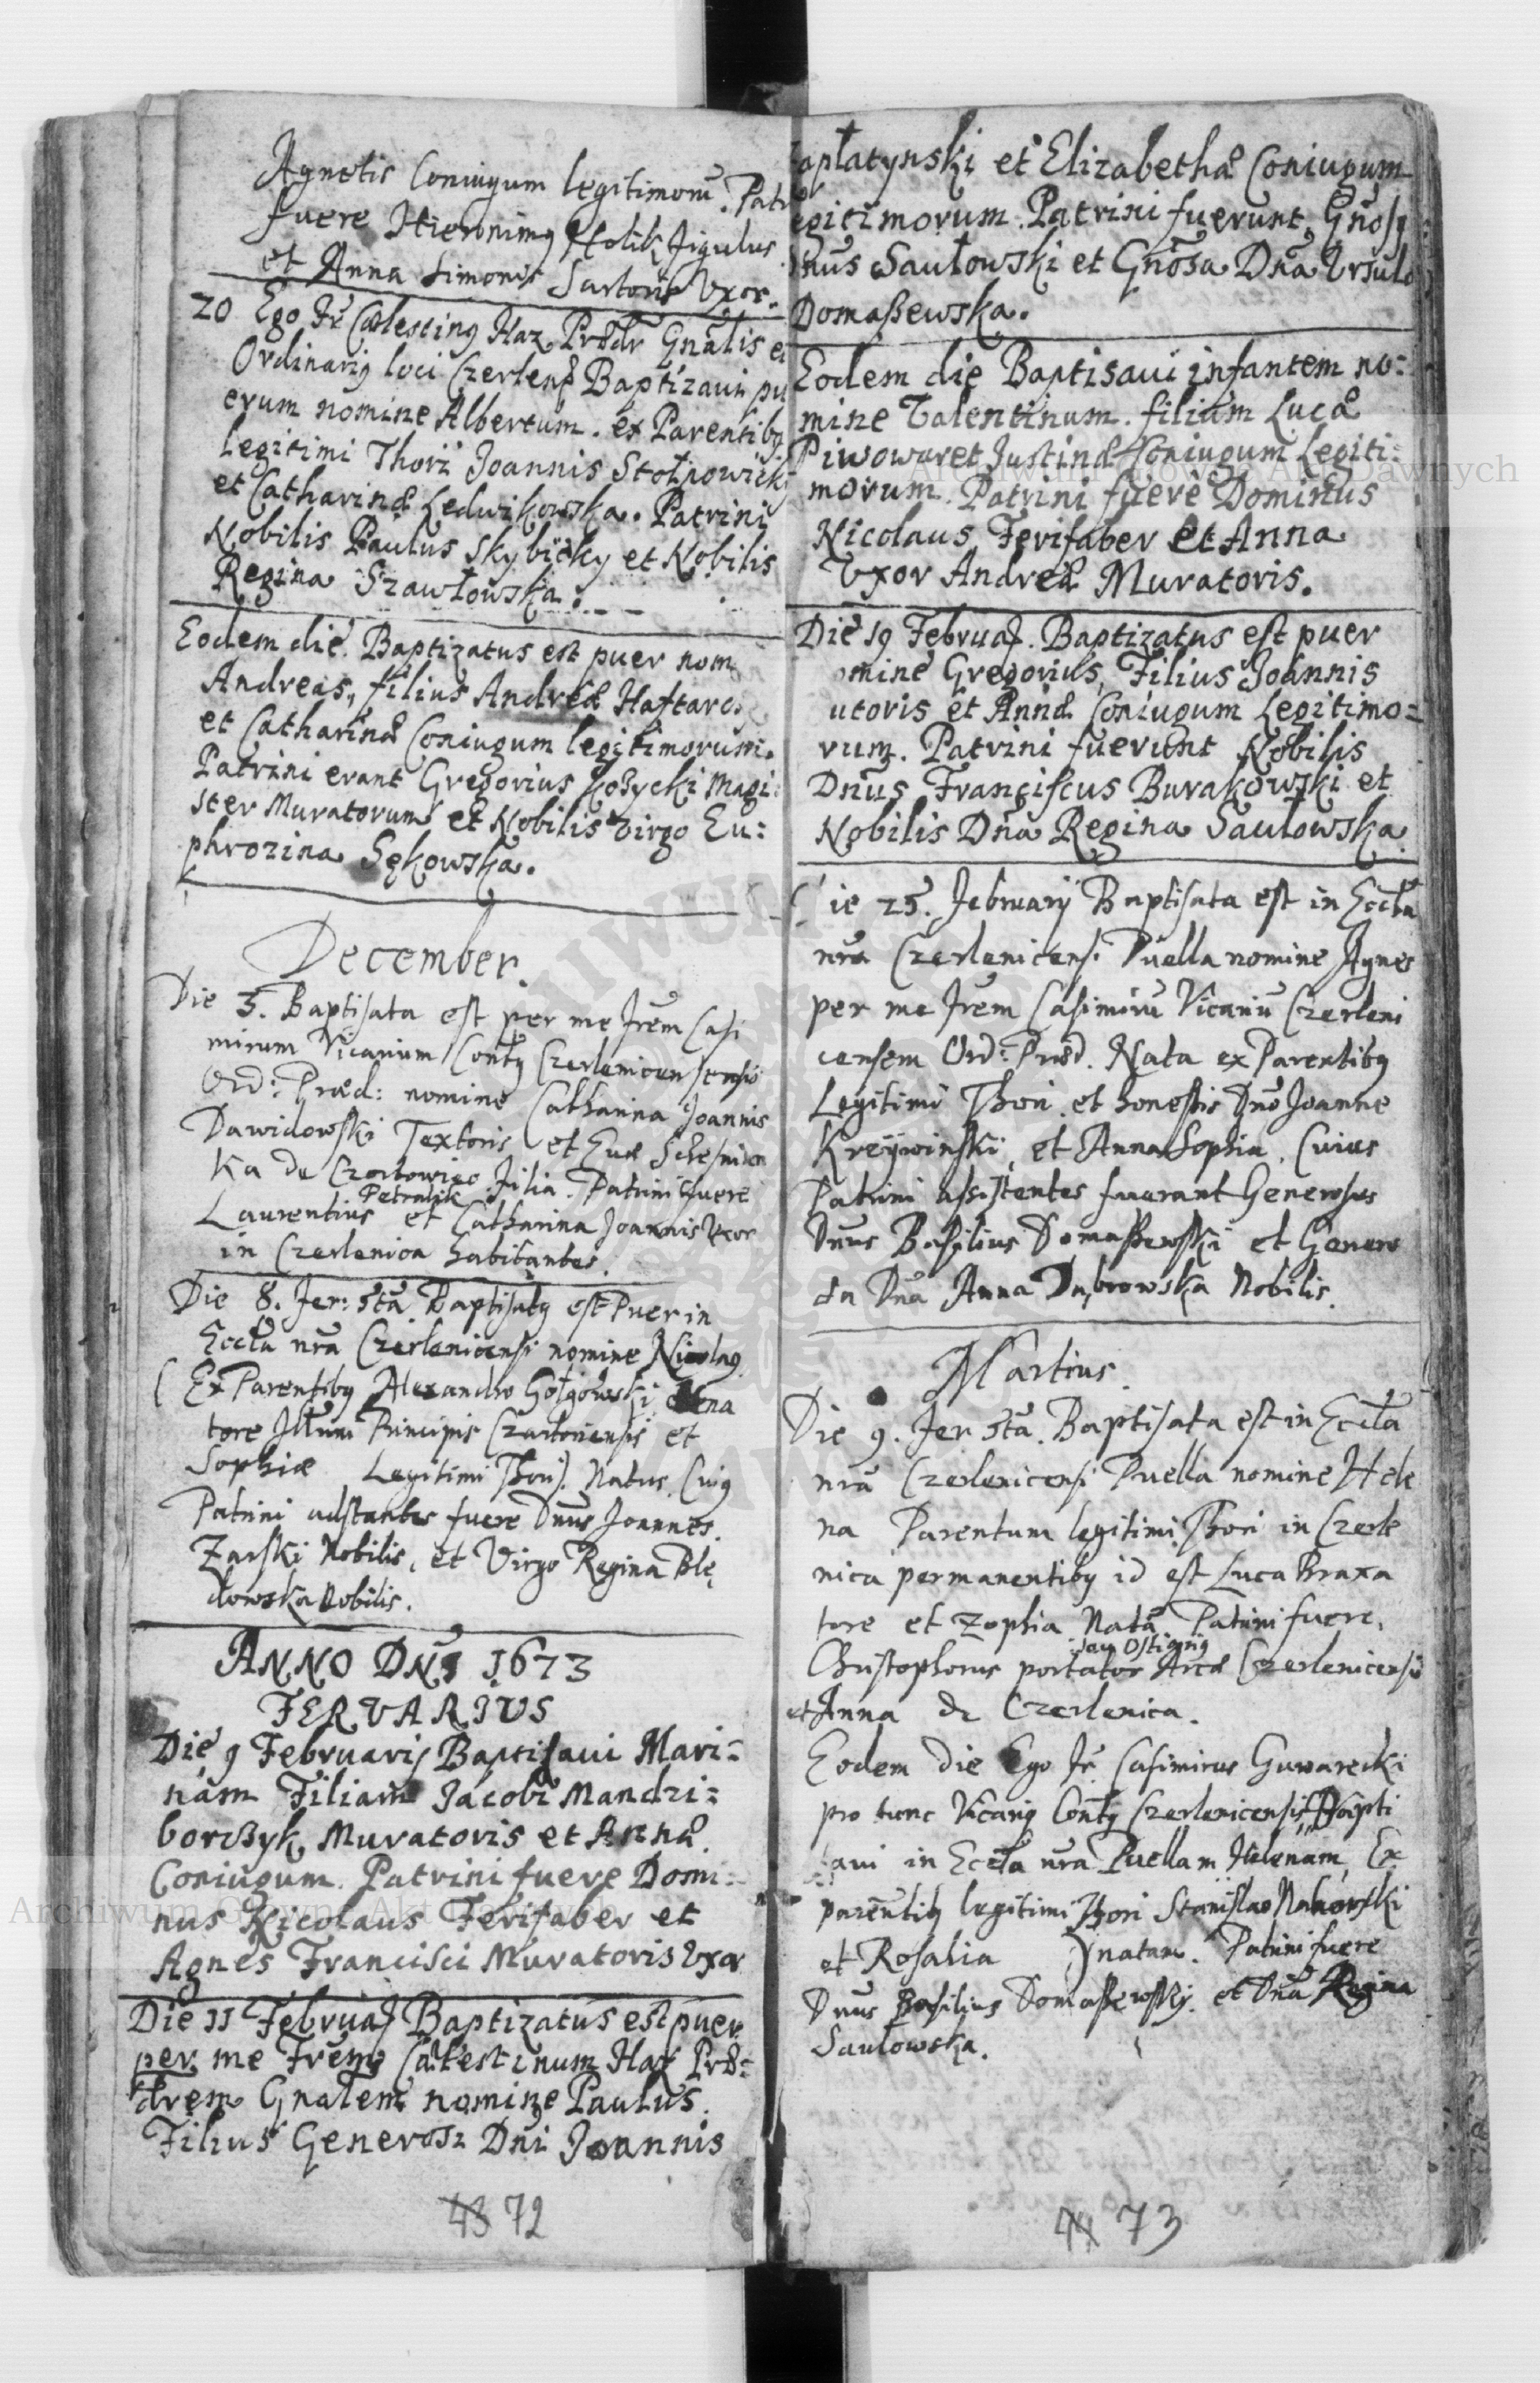 Agnetis Coniugum legitimorũ. Patr
fuere Hieronimꝯ Holik Figulus
et Anna Simonis Sartoris Vxor.
20 Ego Fr̃ Cælestinꝯ Haz Prædr Gñalis et
Ordinariꝯ loci Czerlenę Baptizavi pu
erum nomine Albertum. ex Parentibꝯ
legitimi Thori Joannis Stołpowicki
et Catharinæ Ledwikowska. Patrini
Nobilis Paulus Skybicky et Nobilis
Regina Szawłowska.
Eodem die Baptizatus est puer nom
Andreas, filius Andreæ Haftarc
et Catharinæ Coniugum legitimorum.
Patrini erant Gregorius Kozycki Magi:
ster Muratorum et Nobilis Virgo Eu:
phrozina Sękowska.
December.
Die 3. Baptisata est per me Frem̃ Casi
mirum Vicarium Contꝯ Czerlenicensis
Ord: Præd: nomine Catharina Joannis
Dawidowski Textoris et Euæ
Ka de Czortowiec Filia. Patrini fuere
Petralik
Laurentius et Catharina Joannis Vxor
in Czerlenica habitantes.
Die 8. Fer: 5tã Baptisatꝯ est Puer in
Eccła nrã Czerlenicensi nomine Nicolaꝯ
Ex Parentibꝯ Alexandro Gołgowski
tore Illum Principis Czartoriensis et
Sophiæ Legitimi Thori. Natus. Cuiꝯ
Patrini adstantes fuere Dnus Joannes
Zarski Nobilis, et Virgo Regina Blę
dowska Nobilis.
ANNO DNI 1673
FERVARIVS
Die 9 Februarij Baptisavi Mari=
nam Filiam Jacobi Mandzi=
borczyk Muratoris et Annæ
Coniugum. Patrini fuere Domi=
nus Nicolaus Ferifaber et
Agnes Francisci Muratoris Vxor
Die 11 Februaꝭ Baptizatus est puer
per me Frem̃ Cælestinum Haz Præ=
drem Gnalem nomine Paulus.
Filius Generosi Dñi Joannis
43 72
apłatynski et Elizabethæ Coniugum
egitimorum. Patrini fuerunt, Gnosꝯ
Dnus Saułowski et Gnõsa Dnã Vrsula
Domaßewska.
Eodem die Baptisaui infantem no:
mine Valentinum. filium Lucæ
Piwowar et Justinæ Coniugum Legiti:
morum. Patrini fuere Dominus
Nicolaus Ferifaber et Anna
Vxor Andreæ Muratoris.
Die 19 Februaꝭ. Baptizatus est puer
omine Gregorius, Filius Joannis
utoris et Annæ Coniugum Legitimo=
rum. Patrini fuerunt Nobilis
Dnus Franciscus Burakowski et
Nobilis Dña Regina Saułowska.
ie 25. Februarij Baptisata est in Eccła
nrã Czerlenicensi Puella nomine Agnes
per me Frem Casimirũ Vicariũ Czerleni
censem Ord: Præd. Nata ex Parentibꝯ
Legitimi Thori et honestis Dño Joanne
Kreÿwinski, et Anna Sophia. Cuius
Patrini assistentes fuerant Generosus
Dnus Basilius Domaßewski et Genero
sa Dña Anna Dąbrowska Nobilis.
Martius.
Die 9. Fer 5tã. Baptisata est in Eccła
nrã Czerlenicensi Puella nomine Hele
na Parentum legitimi Thori in Czerle
nica permanentibꝯ id est Luca Braxa
tore et Zophia Nata. Patrini fuere.
seu Ostiariꝯ
Christophorus portator Arcæ Czerlenicensis
et Anna de Czerlenica.
Eodem Die Ego Fr̃ Casimirus Guwarecki
pro tunc Vicariꝯ Contꝯ Czerlenicensis, Bapti
aui in Eccła nrã Puellam Helenam, Ex
parentibꝯ legitimi Thori Stanislao Nahowski
et Rosalia ) natam. Patrini fuere
Dnus Basilius Domaßewskij. et Dña Regina
Saulowska.
44 73
Archiwum Główne Akt Dawnych
Archiwum Główne Akt